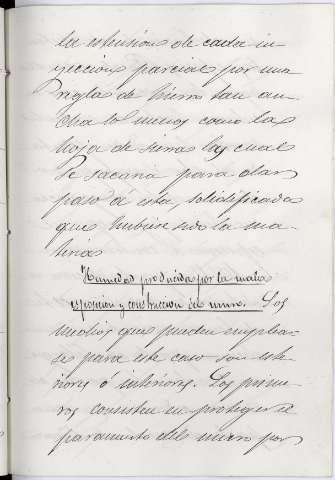 la estension de cada in-
yeccion parcial por una
regla de hierro tan an-
cha lo menos como la
hoja de sierra la cual
se sacaria para dar
paso á esta, solidificada
que hubiese sido la ma-
teria
Humedad producida por la mala
esposicion y construccion del muro. Los
medios que pueden emplear-
se para este caso son este-
riores ó interiores. Los prime-
ros consisten en proteger el
paramento del muro por